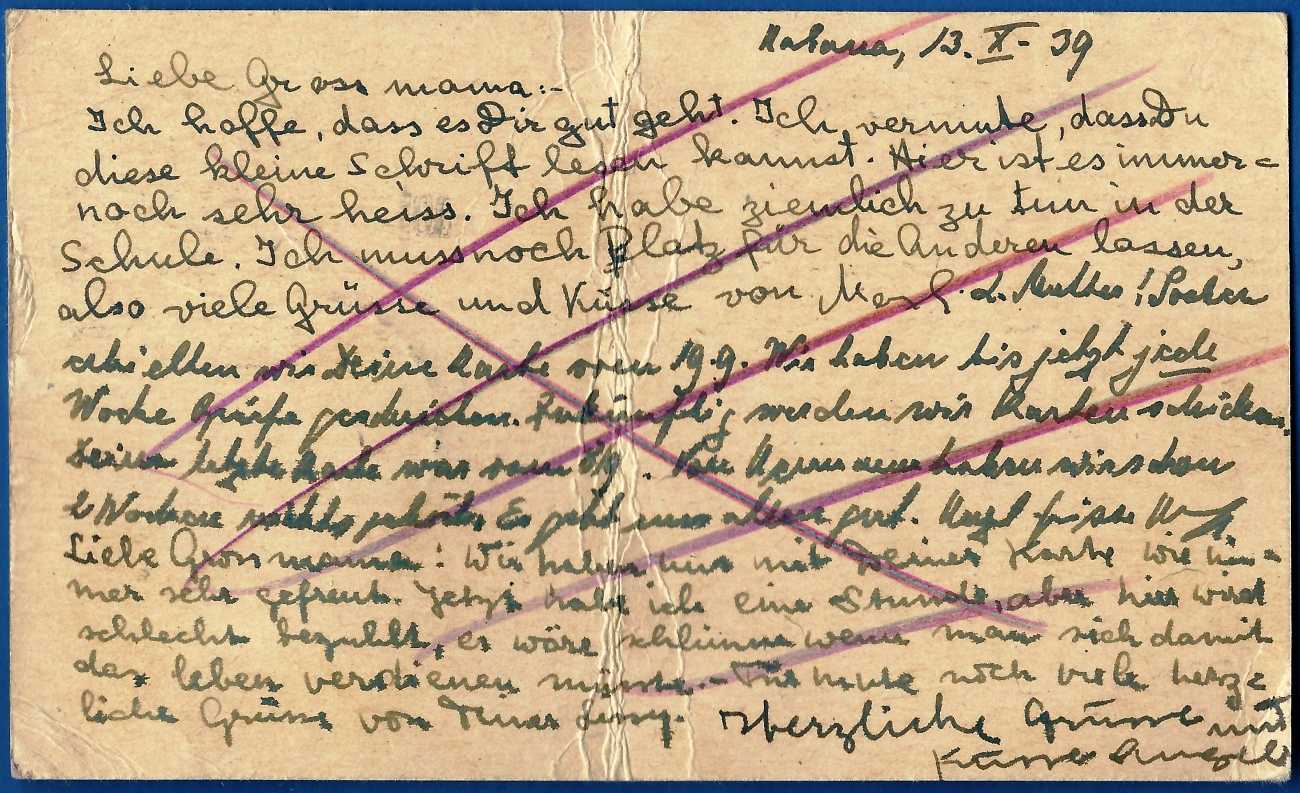 Habana, 13. X - 39
Liebe Grossmama:-
Ich hoffe, dass es Dir gut geht. Ich vermute, dass Du
diese kleine Schrift lesen kannst. Hier ist es immer=
noch sehr heiss. Ich habe ziemlich zu tun in der
Schule. Ich muss noch Platz für die Anderen lassen,
also viele Grüsse und Küsse von L. Mutter! Soeben
erhielten wir Deine Karte vom 19.9. Wir haben bis jetzt jede
Woche geschrieben. Zukünftig werden wir Karten schicken.
Deine letzte Karte war vom haben wir schon
2 Wochen nichts gehört. Es geht uns allen gut.
Liebe Grossmama! Wir haben uns mit Deiner Karte wie im=
mer sehr gefreut. Jetzt habe ich eine Stunde, aber hier wird
schlecht bezahlt, es wäre schlimm wenn man sich damit
das leben verdienen müsste.- Für heute noch viele herz=
liche Grüsse von Deiner
Herzliche Grüsse und
Küsse